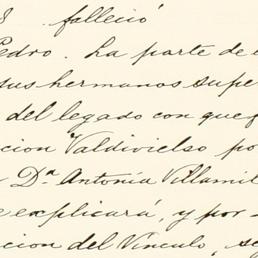 falleció
Pedro. La parte de
sus hermanos supe
del legado con que
cion Valdivielso po
Dª Antonia Villamil
explicará, y por-
cion del Vinculo, se